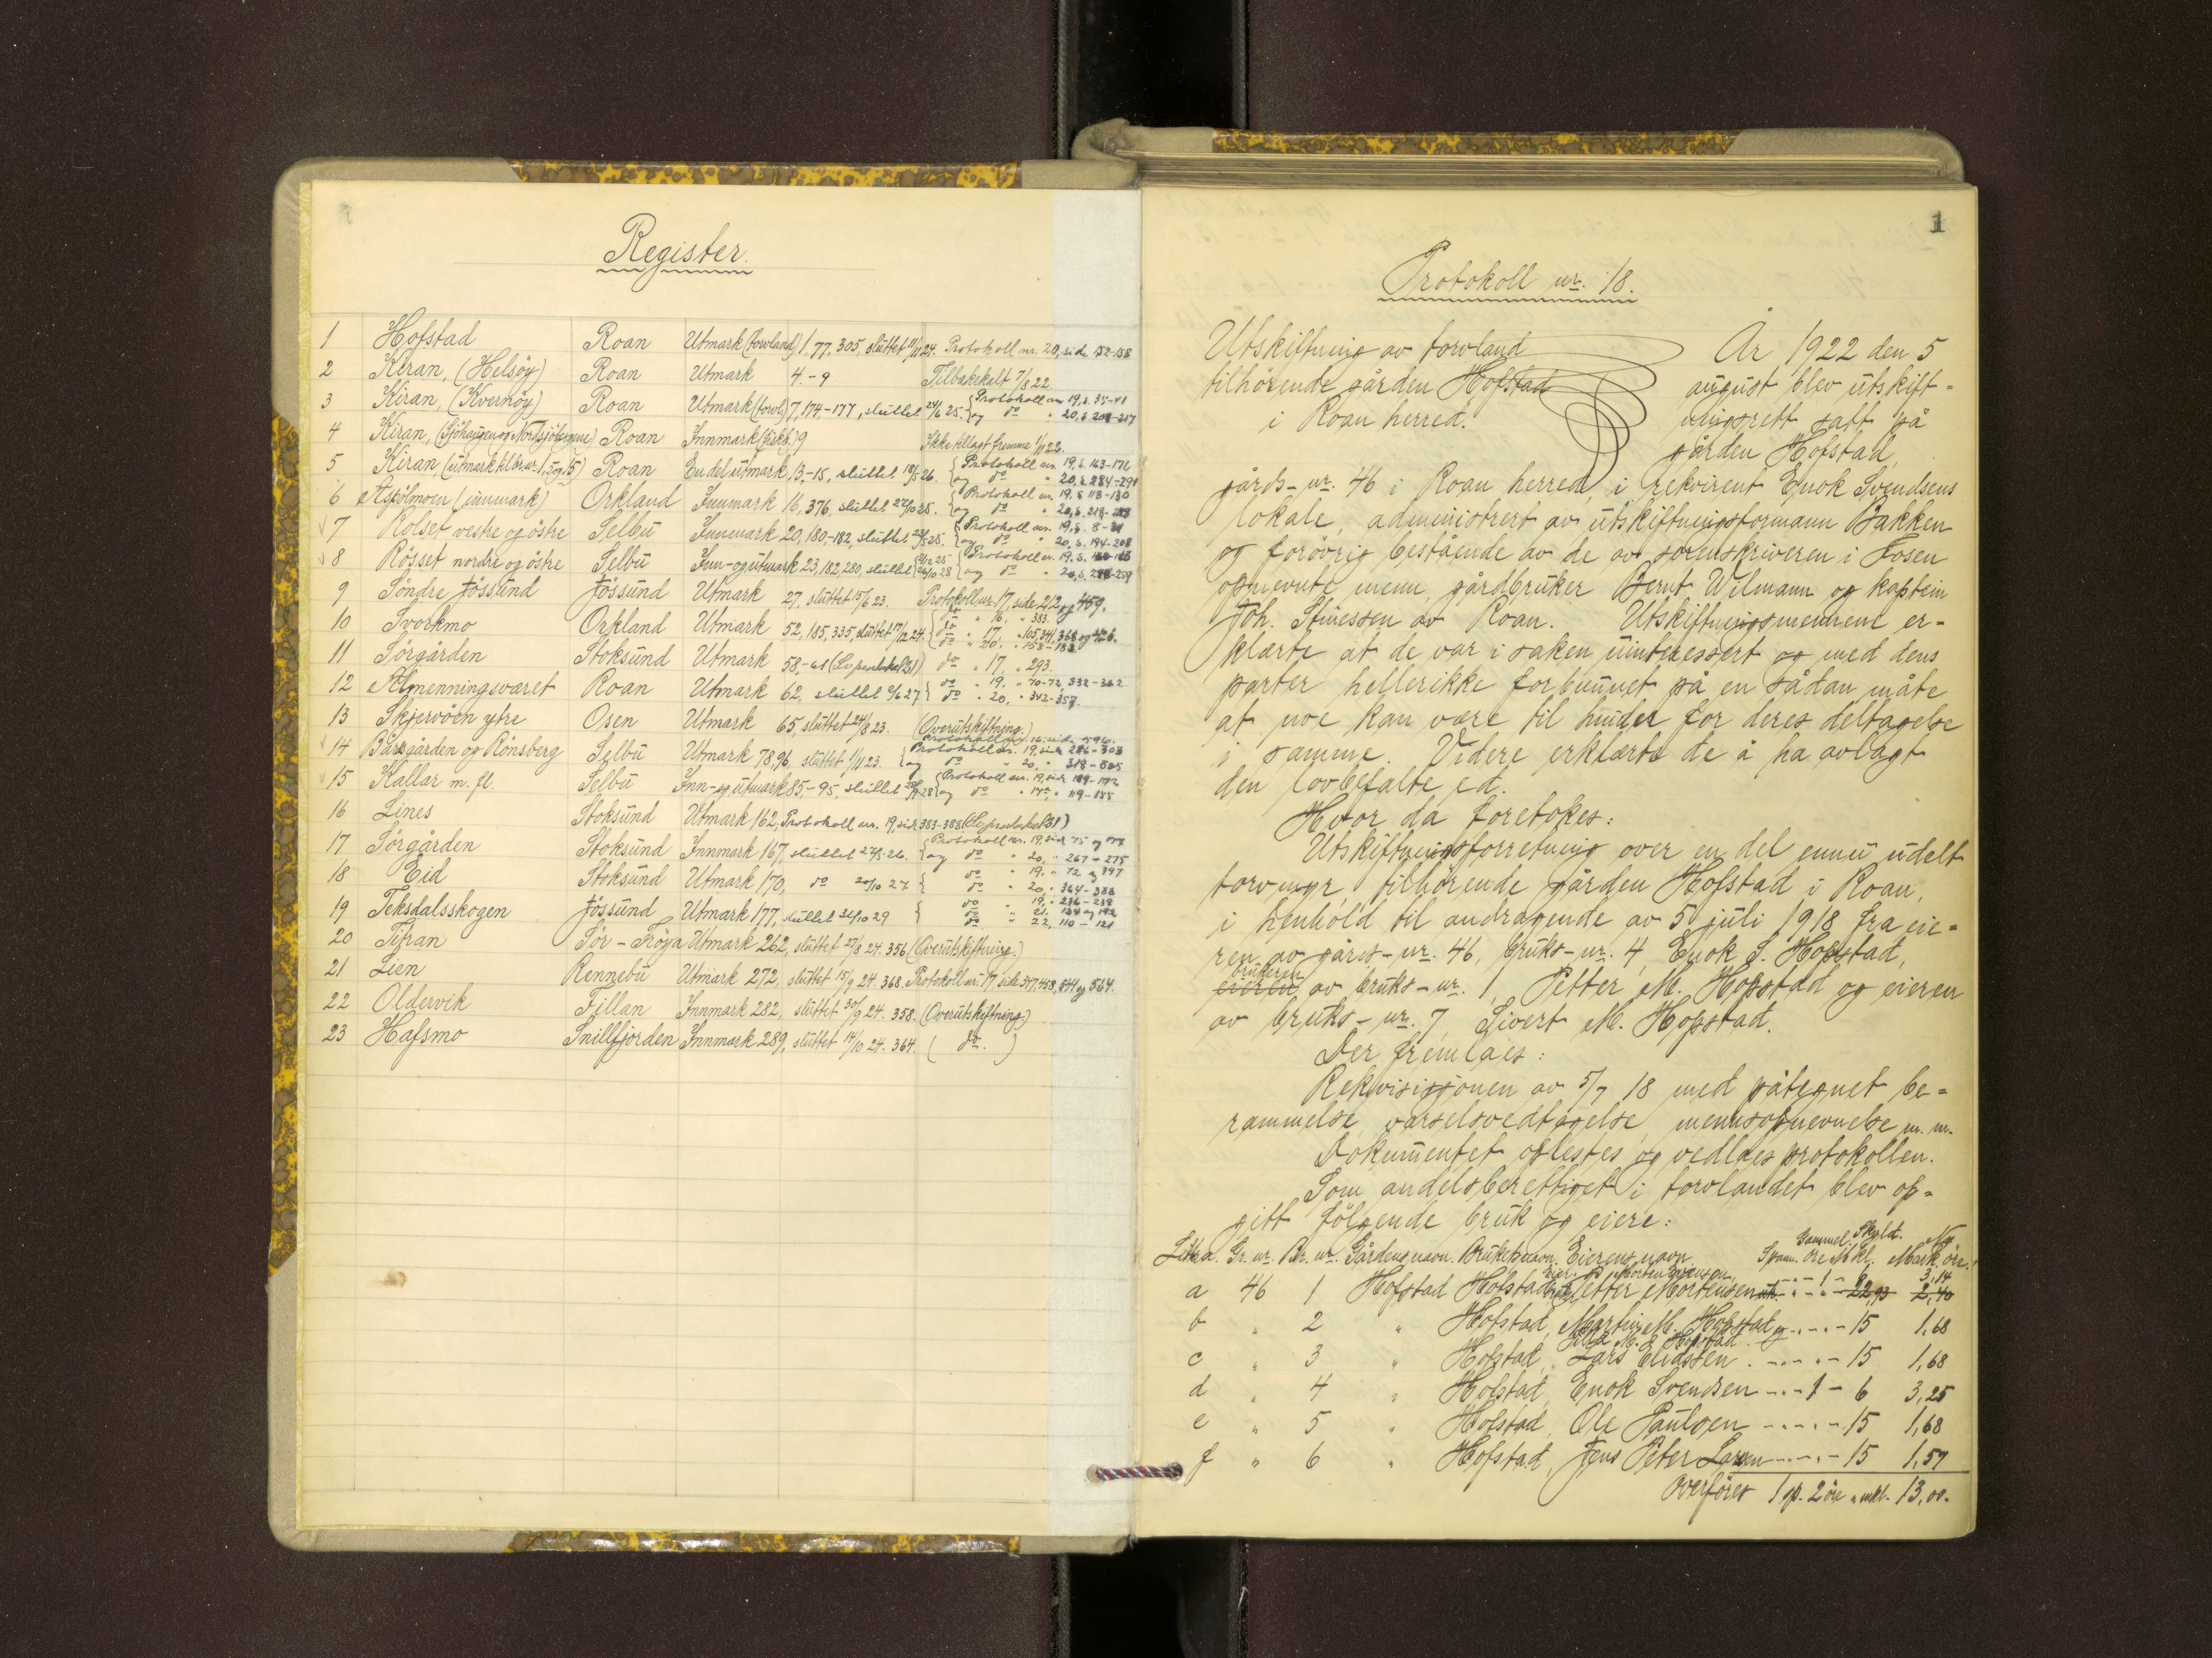 Register.
1 Hofstad Roan Utmark (torvland) 1, 77, 305, sluttet 11/11 24. Protokoll nr. 20, side 152-158
2 Kiran, (Helsöy) Roan Utmark 4.-9 Tilbakekalt 7/8 22.
3 Kiran, (Kvernöy) Roan Utmark (torvl.) 7, 174-177, sluttet 24/6 25. {Protokoll nr 19, s. 35-41
og do " 20, s. 208-217
4 Kiran, Roan Innmark 9 Ikke tillagt fremme 1/11 22.
5 Kiran, (utmark til br. nr. 1, 3 og 5) Roan En del utmark 13,-15, sluttet 18/5 26. {Protokoll nr. 19, s. 163-176
og do " 20, s. 284-291
6 Aspölmoen (innmark) Orkland Innmark 16, 376, sluttet 27/10 25. {Protokoll nr. 19, s. 113-130
og do " 20, s. 218-
7 Rolset vestre og östre Selbu Innmark 20, 180-182, sluttet 25. {Protokoll nr. 19, s. 8-21
og do " 20, s. 194-208
8 Rösset nordre og östre Selbu Inn- og utmark 23, 182, 280, sluttet {Protokoll nr. 19, s.
26/10 28 og do " 20, s. -259
9 Söndre Jössund Jössund Utmark 27, sluttet 15/6 23. Protokoll nr. 17, side 212 og 459.
10 Svorkmo Orkland Utmark 52, 185, 335, sluttet 17/12 24. {do " 16, " 383.
do " 17, " 105, 341, 368 og 426.
do " 20, " 158-182
11 Sörgården Stoksund Utmark 58,-61 do " 17, " 293.
12 Almenningsværet Roan Utmark 62, sluttet 2/6 27 {do " 19, " 70-72, 332-362
do " 20, " 342-357.
13 Skjervöen ytre Osen Utmark 65, sluttet 24/8 23. (Overutskiftning.)
14 Bårsgården og Rönsberg Selbu Utmark 78, 96, sluttet 1/11 23. {Protokoll nr. 16 side 596.
Protokoll nr. 19, side 286-303
og do " 20, " 318-
15 Kallar m. fl. Selbu Inn- og utmark 85,-95, sluttet 28 {Protokoll nr. 19, side 189-192
og do " " 119-188
16 Lines Stoksund Utmark 162, Protokoll nr. 19, side 383-388
17 Sörgården Stoksund Innmark 167, sluttet 22/5 26. {Protokoll nr. 19, side 75 og
og do " 20, " 267-275
18 Eid Stoksund Utmark 170, do 20/10 27 {do " 19, " 72 og 397
do " 20, " 364-388
19 Teksdalsskogen Jössund Utmark 177, sluttet 31/10 29 {do " 19, " 236-238
do " 21, " 134 og 192
do " 22, 110-121
20 Titran Sör-Fröya Utmark 262, sluttet 27/8 24. 356 (Overutskiftning.)
21 Lien Rennebu Utmark 272, sluttet 15/9 24. 368. Protokoll nr. 17 side 377, 458, 544 og 564.
22 Oldervik Fillan Innmark 282, sluttet 30/9 24. 358. (Overutskiftning.)
23 Hafsmo Snillfjorden Innmark 289, sluttet 14/10 24. 364. ( do. )
1
Protokoll nr. 18.
Utskiftning av torvland
tilhörende gården Hofstad
i Roan herred.
År 1922 den 5
august blev utskift=
ningsrett satt på
gården Hofstad,
gårds-nr. 46 i Roan herred, i rekvirent Enok Svendsens
lokale, administrert av utskiftningsformann Bakken
og forövrig bestående av de av sorenskriveren i Fosen
opnevnte menn, gårdbruker Bernt Wilmann og kaptein
Joh. Stinessen av Roan. Utskiftningsmennene er-
klærte at de var i saken uinteressert og med dens
parter hellerikke forbunnet på en sådan måte
at noe kan være til hinder for deres deltagelse
i samme. Videre erklærte de å ha avlagt
den lovbefalte ed.
Hvor da foretokes:
Utskiftningsforretning over en del ennu udelt
torvmyr tilhörende gården Hofstad i Roan,
i henhold til andragende av 5 juli 1918 fra eie=
ren av gårds-nr. 46, bruks-nr. 4, Enok S. Hopstad,
brukeren
eieren av bruks-nr. 1, Petter M. Hopstad og eieren
av bruks-nr. 7, Sivert M. Hopstad.
Der fremlaes:
Rekvisisjonen av 5/7 18 med påtegnet be=
rammelse, varselsvedtagelse, mennsopnevnelse m. m.
Dokumentet oplestes og vedlaes protokollen.
Som andelsberettiget i torvlandet blev op=
gitt fölgende bruk og eiere:
Gammel Skyld. Ny
Litra. Gr. nr. Br. nr. Gårdens navn. Brukets navn. Eierens navn. Spann. öre Mkl. Mark öre.
Morten " " 1 - 6 3,14
a 46 1 Hofstad Hofstad Petter Mortensen " " 22,93 2,40
b " 2 " Hofstad, Martin M. Hofstad og " " 15 1,68
M. E. Hopstad
c " 3 " Hofstad, Lars Eliassen. " " 15 1,68
d " 4 " Hofstad, Enok Svendsen " 1 - 6 3,25
e " 5 " Hofstad, Ole Paulsen " " 15 1,68
f " 6 " Hofstad, Jens Peter Larsen " " 15 1,57
Overföres 1 sp. 2 öre " mkl. 13,00.